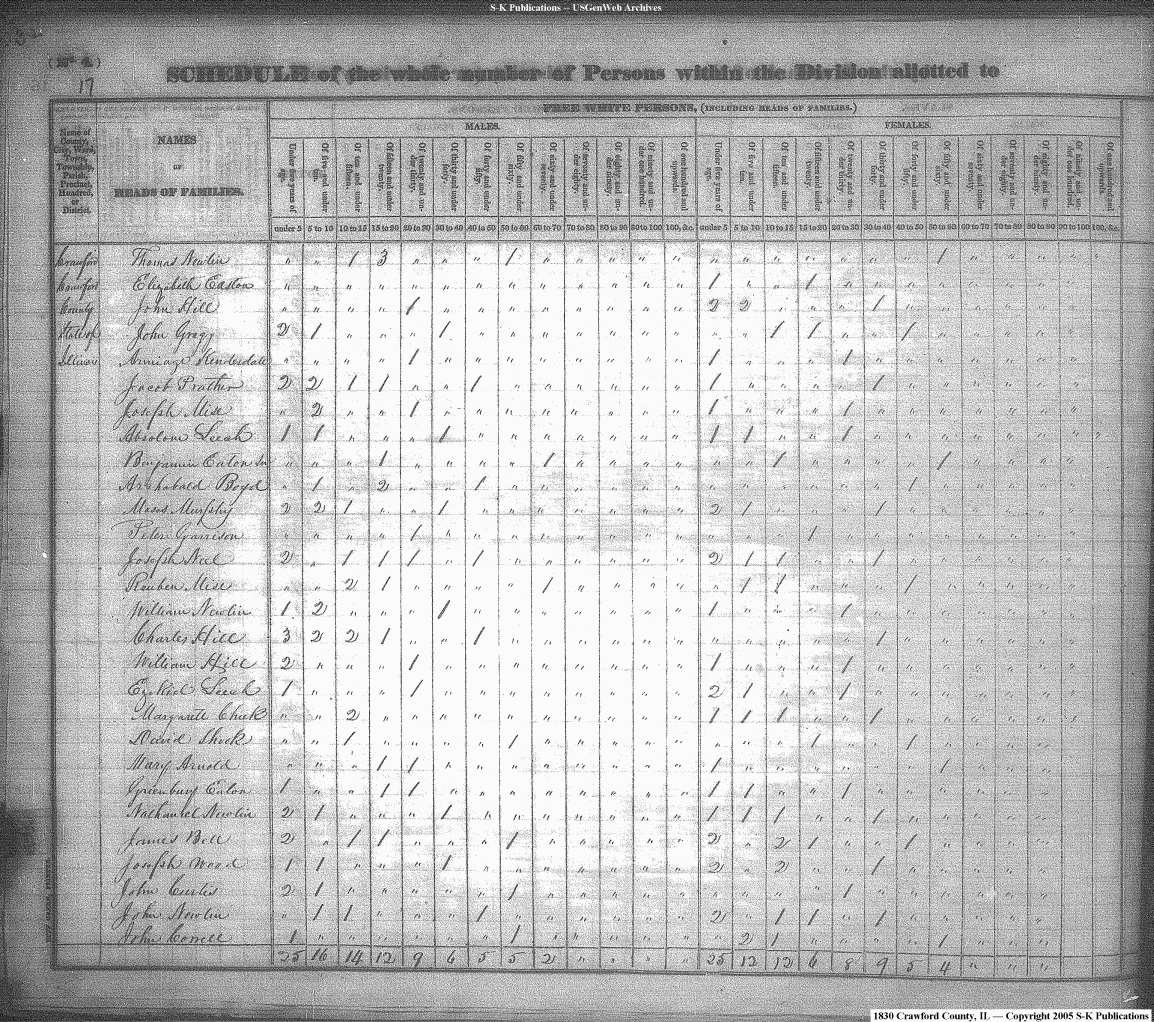 S-K Publications -- USGenWeb Archives
(No 4.)
17
SCHEDULE of the whole number of Persons within the Division allotted to
FREE WHITE PERSONS, (INCLUDING HEADS OF FAMILIES.)
MALES. FEMALES.
Name of County, City, Ward, Town, Township, Parish, Precinct, Hundred, or District.
NAMES OF HEADS OF FAMILIES.
Under five years of age. Of five and under ten. Of ten and under fifteen. Of fifteen and under twenty. Of twenty and under thirty. Of thirty and under forty. Of forty and under fifty. Of fifty and under sixty. Of sixty and under seventy. Of seventy and under eighty. Of eighty and under ninety. Of ninety and under one hundred. Of one hundred and upwards. Under five years of age. Of five and under ten. Of ten and under fifteen. Of fifteen and under twenty. Of twenty and under thirty. Of thirty and under forty. Of forty and under fifty. Of fifty and under sixty. Of sixty and under seventy. Of seventy and under eighty. Of eighty and under ninety. Of ninety and under one hundred. Of one hundred and upwards.
under 5 5 to 10 10 to 15 15 to 20 20 to 30 30 to 40 40 to 50 50 to 60 60 to 70 70 to 80 80 to 90 90 to 100 100, &c. under 5 5 to 10 10 to 15 15 to 20 20 to 30 30 to 40 40 to 50 50 to 60 60 to 70 70 to 80 80 to 90 90 to 100 100, &c.
Crawford Thomas Newlin " " 1 3 " " " 1 " " " " " " " " " " " " 1 " " " "
Crawford Elizabeth Easton " " " " " " " " " " " " " 1 " " 1 " " " " " " " "
County John Hill " " " " 1 " " " " " " " " 2 2 " " " 1 " " " " " "
State of John Gragg 2 1 " " " 1 " " " " " " " " " 1 1 " " 1 " " " " "
Illinois " " " " 1 " " " " " " " " 1 " " " 1 " " " " " " "
Jacob Prather 2 2 1 1 " " 1 " " " " " " 1 " " " " 1 " " " " " "
Joseph Mise " 2 " " 1 " " " " " " " " 1 " " " 1 " " " " " " "
Absolom Leech 1 1 " " " 1 " " " " " " " 1 1 " " 1 " " " " " " "
Benjamin Eaton Sr " " " 1 " " " " 1 " " " " " " 1 " " " " 1 " " " "
Archabald Boyd " 1 " 2 " " 1 " " " " " " " " " " " " 1 " " " " "
Moses Murphy 2 2 1 " " 1 " " " " " " " 2 1 " " " 1 " " " " " "
Peter Garrison " " " " 1 " " " " " " " " " " " 1 " " " " " " " "
Joseph Neel 2 " 1 1 1 " 1 " " " " " " 2 1 1 " " 1 " " " " " "
Reuben Mise " " 2 1 " " " " 1 " " " " " 1 1 " " " 1 " " " " "
William Newlin 1 2 " " " 1 " " " " " " " 1 " " " 1 " " " " " " "
Charles Hill 3 2 2 1 " " 1 " " " " " " " " " " " 1 " " " " " "
William Hill 2 " " " 1 " " " " " " " " 1 " " " 1 " " " " " " "
Ezekiel Leech 1 " " " 1 " " " " " " " " 2 1 " " 1 " " " " " " "
Margarett Cheek " " 2 " " " " " " " " " " 1 1 1 " " 1 " " " " " "
David Shook " " 1 " " " " 1 " " " " " " " " 1 " " 1 " " " " "
Mary Arnold " " " 1 1 " " " " " " " " 1 " " " " " " 1 " " " "
Greenbury Eaton 1 " " 1 1 " " " " " " " " 1 1 " 1 " 1 " " " " " "
Nathaniel Newlin 2 1 " " " 1 " " " " " " " 1 1 1 " " 1 " " " " " "
James Bell 2 " 1 1 " " " 1 " " " " " 2 " 2 1 " " 1 " " " " "
Joseph Wood 1 1 " " " 1 " " " " " " " 2 " 2 " " 1 " " " " " "
John Curtis 2 1 " " " " " 1 " " " " " " " " " 1 " " " " " " "
John Newlin " 1 1 " " " 1 " " " " " " 2 " 1 1 " 1 " " " " " "
John Correll 1 " " " " " " 1 " " " " " " 2 1 " " " " 1 " " " "
25 16 14 12 9 6 5 5 2 " " " " 25 12 12 6 8 9 5 4 " " "
1830 Crawford County, IL — Copyright 2005 S-K Publications